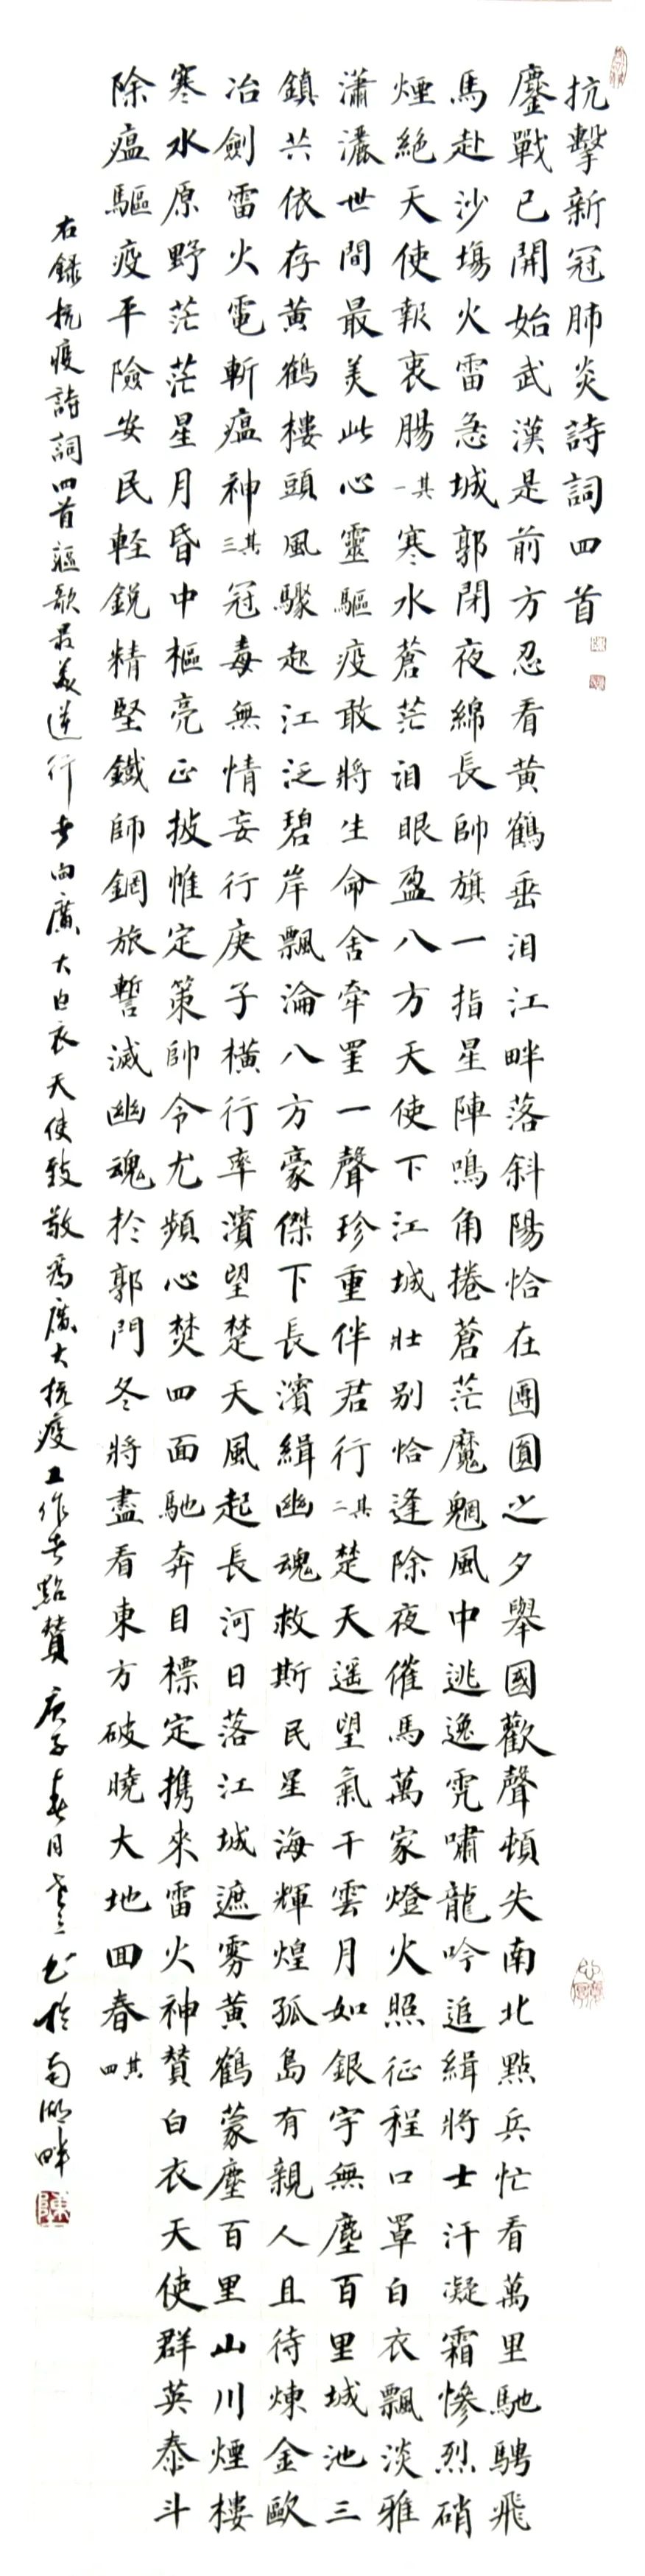 抗擊新冠肺炎詩詞四首
鏖戰已開始武漢是前方忍看黃鶴垂泪江畔落斜陽恰在團圓之夕舉國歡聲頓失南北點兵忙看萬里馳騁飛
馬赴沙場火雷急城郭閉夜綿長帥旗一指星陣鳴角捲蒼茫魔魍風中逃逸虎嘯龍吟追緝將士汗凝霜慘烈硝
煙絕天使報衷腸其一寒水蒼茫泪眼盈八方天使下江城壯别恰逢除夜催馬萬家燈火照征程口罩白衣飄淡雅
瀟灑世間最美此心靈驅疫敢將生命舍牽罣一聲珍重伴君行其二楚天遥望氣干雲月如銀宇無塵百里城池三
鎮共依存黃鶴樓頭風驟起江泛碧岸飄淪八方豪傑下長濱緝幽魂救斯民星海輝煌孤島有親人且待煉金歐
冶劍雷火電斬瘟神其三冠毒無情妄行庚子橫行率濱望楚天風起長河日落江城遮雾黃鶴蒙塵百里山川煙樓
寒水原野茫茫星月昏中樞亮正披惟定策帥令尤頻心焚四面馳奔目標定携來雷火神贊白衣天使群英泰斗
除瘟驅疫平險安民輕鋭精堅鐵師鋼旅誓滅幽魂於郭門冬將盡看東方破曉大地回春其四
右錄抗疫詩詞四首謳歌最美逆行者向廣大白衣天使致敬爲廣大抗疫工作者點贊庚子春月書於南湖畔
陳